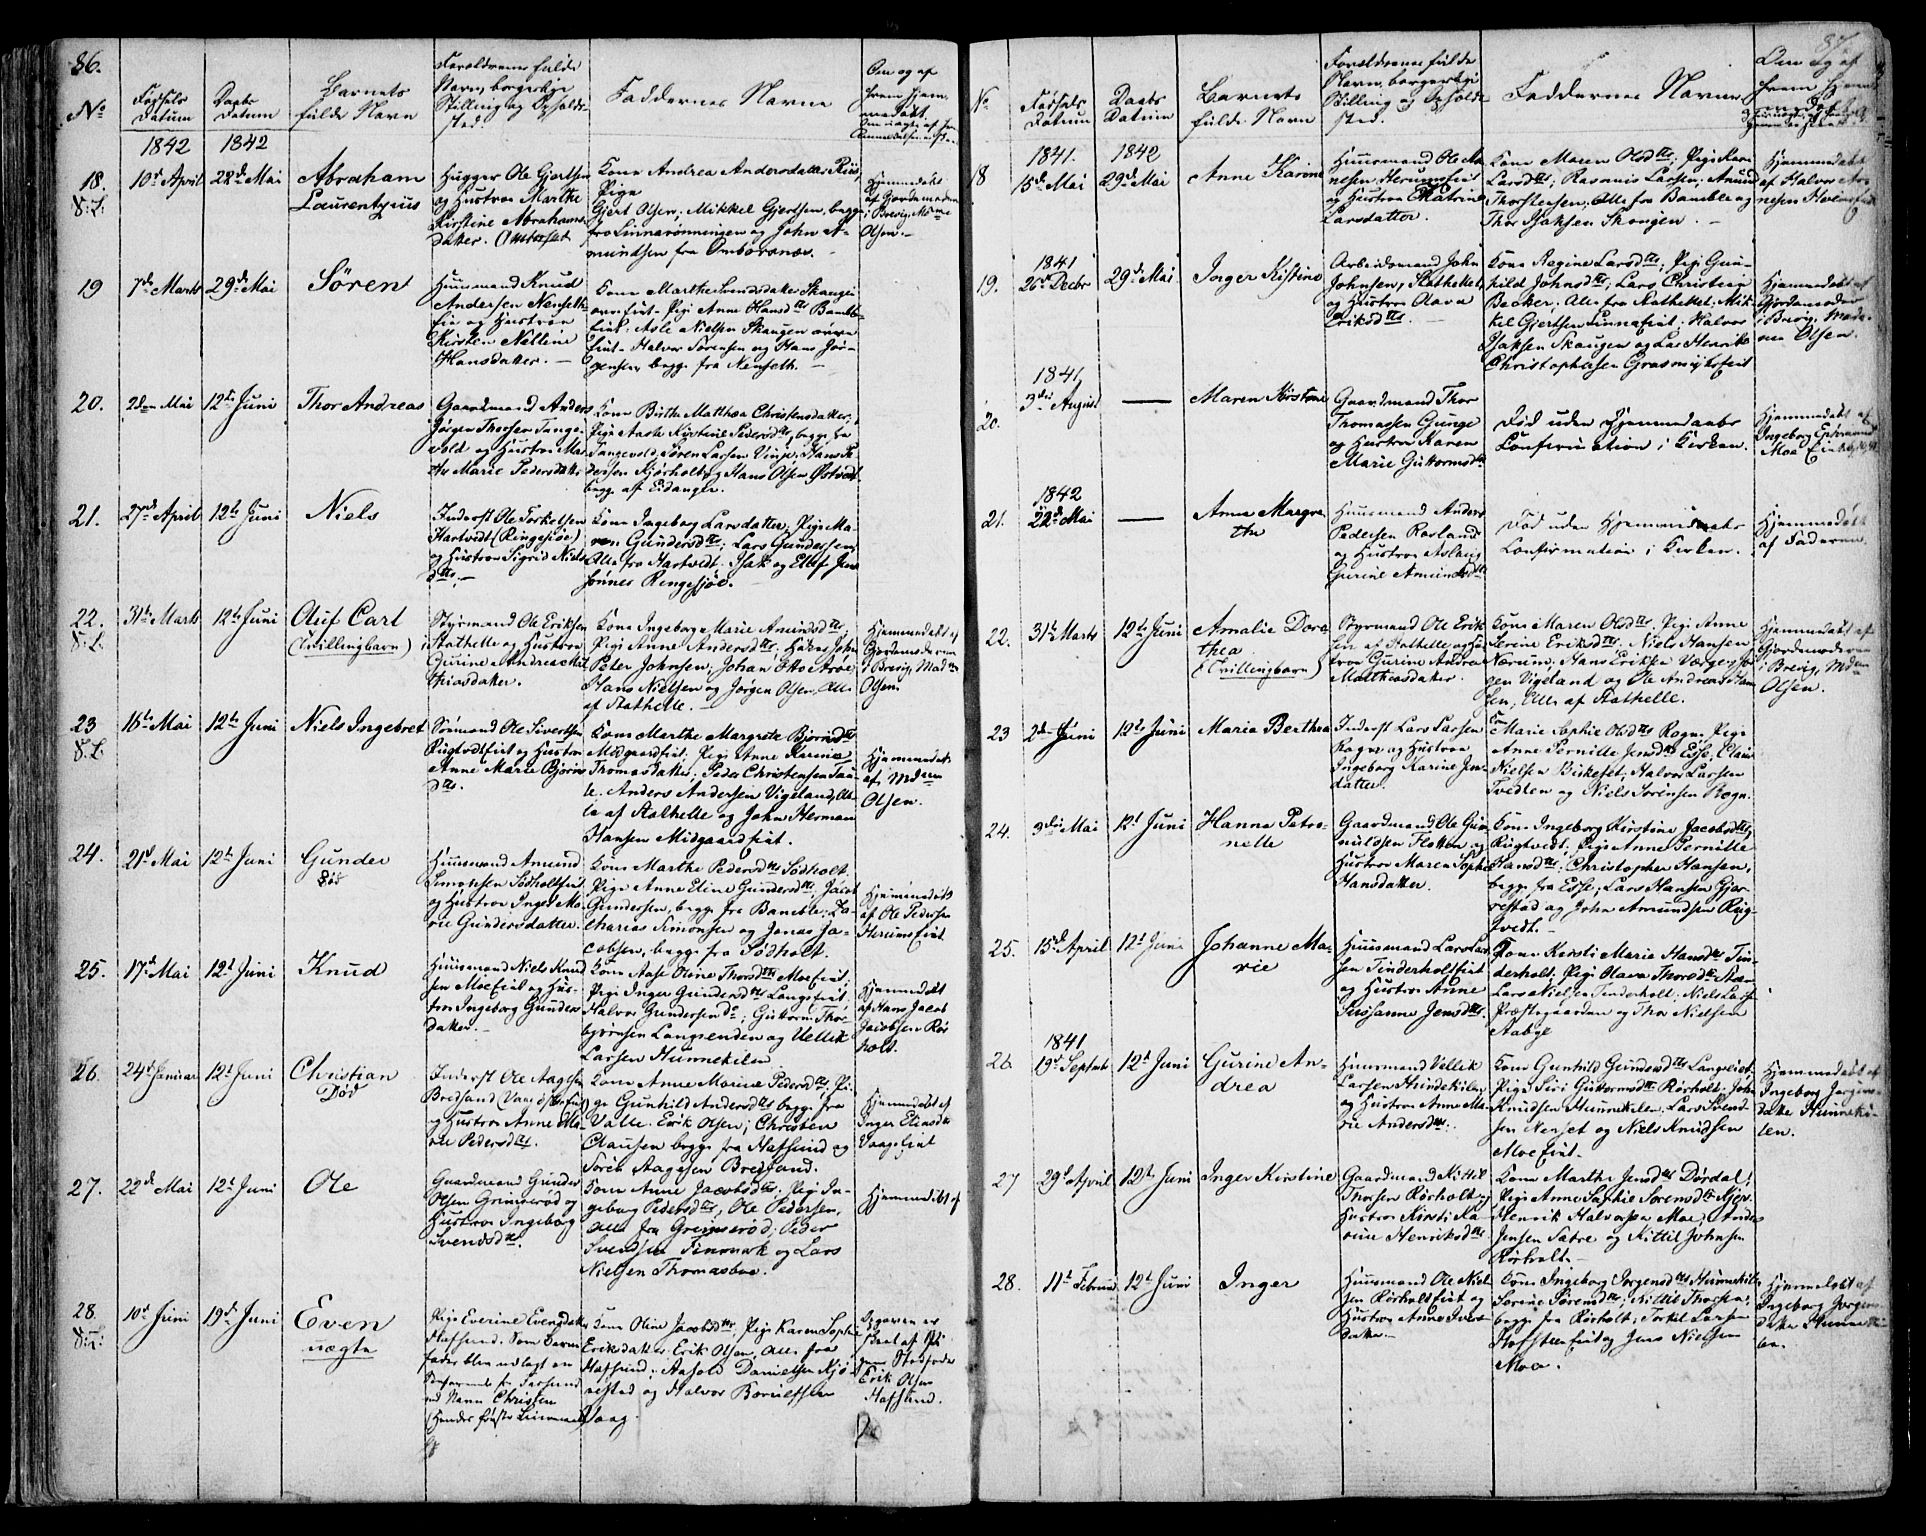 86.
No
Fødsels
Datum
Daabs
Datum
Barnets
fulde Navn
Forældrenes fulde
Navn, borgerlige
Stilling og Opholds-
sted.
Faddernes Navne
Om og af
hvem hjem-
medøbt.
1842
1842
18.
10d April
22d Mai
Abraham
Laurentzius
Hugger Ole Gjertsen
og Hustru Marthe
Kirstine Abrahams
datter.
Kone Andrea Andersdatter Riis,
Pige
Gjert Olsen; Mikkel Gjertsen, begge
fra Linnarønningen og John A-
mundsen fra Omborsnæs.
Hjemmedøbt
af Gjordemoderen
i Brevig, Mdme
Olsen.
19
7de Marts
29de Mai
Søren
Huusmand Knud
Andersen Nenseth-
eie og Hustru
Kirsten Nelline
Hansdatter.
Kone Marthe Svendsdatter Skaugen
Pige Anne Hansdtr Bamble-
eiet. Asle Nielsen Skaugen
eiet. Halvor Sørensen og Hans Jør-
gensen, begge fra Nenseth.
20.
2den Mai
12te Juni
Thor Andreas
Gaardmand Anders
Jørgen Thorsen Tange-
vold og Hustru Mar-
the Marie Pedersdatter
Kone Birthe Matthea Christensdatter;
Pige Aaste Kirstine Pedersdtr, begge fra
Tangevold, Søren Larsen Vinje, Hans Pe-
dersen Kjørholt og Hans Olsen Østvedt
begge af Eidanger.
21.
27de April
12te Juni
Niels
Inderst Ole Torkelsen
Hartvedt (Ringesjøe)
og Hustru Sigrid Niels-
dtr.
Kone Ingeborg Larsdatter; Pige Ma-
ren Gundersdtr; Lars Gundersen,
Alle fra Hartvedt. Isak og Ellef Jen
Ringesjøe.
22.
31te Marts
12te Juni
Oluf Carl
(Tvillingbarn)
Styrmand Ole Eriksen
Stathelle og Hustru
Gurine Andrea Mat-
thiasdatter.
Kone Ingeborg Marie Amundsdtr,
Pige Anne Andersdtr;
Peter Johnsen; Johan Otto Arøe,
Hans Nielsen og Jørgen Olsen, Alle
af Stathelle.
Hjemmedøbt af
Gjordemoderen
i Brevig, Madme
Olsen.
23
16te Mai
12te Juni
Niels Ingebret
Sømand Ole Sivertsen
Rugtvedteiet og Hustru
Anne Marie Bjørns
dtr.
Kone Marthe Margrete Bjørnsdtr
Midgaardeiet, Pige Anne Karine
Thomasdatter; Peder Christensen
Anders Andersen Vigeland, Al-
le af Stathelle og John Herman
Hansen Midgaardeiet.
Hjemmedøbt
af Mdme
Olsen.
24.
21d Mai
12te Juni
Gunder
Død
Huusmand Amund
Simonsen Sødholteiet
og Hustru Inger Ma-
rie Gundersdatter.
Kone Marthe Pedersdtr Sødholt.
Pige Anne Eline Gundersdtr, Jacob
Gundersen, begge fra Bamble; Za-
charias Simonsen og Jonas Ja-
cobsen, begge fra Sødholt.
Hjemmedøbt
af Ole Pedersen
Herumseiet
25.
17d Mai
12te Juni
Knud
Huusmand Niels Knud
sen Moeeiet og Hus-
tru Ingeborg Gunders
datter.
Kone Aase Oline Thorsdtr Moeeiet,
Pige Inger Gundersdtr Langeeiet,
Halvor Gundersen do; Guttorm Thor-
bjørnsen Langsenden og Vellek
Larsen Hunnekilen
Hjemmedøbt
af Hans Jacob
Jacobsen Rør-
holt.
26.
24d Januar
12te Juni
Christian
Død
Inderst Ole Aagesen
Bredsand
og Hustru Anne Ma-
rie Pedersdtr.
Kone Anne Marie Pedersdtr, Pi-
ge Gunhild Andersdtr begge fra
Valle. Erik Olsen; Christen
Clausen begge fra Hafsund og
Søren Aagesen Bredsand.
Hjemmedøbt af
Inger Elinsdtr
Vaageeiet
27.
22de Mai
12te Juni
Ole
Gaardmand Gunder
Olsen Grimerød og
Hustru Ingeborg
Svendsdtr.
Kone Anne Jacobsdtr; Pige In-
geborg Pedersdtr, Ole Pedersen,
Alle fra Grimerød; Peder
Svendsen Finmark og Lars
Nielsen Thomasbøe.
Hjemmedøbt af
28.
10de Juni
19de Juni
Even
uægte
Pige Everine Evensdatter
Hafsund. Som Barne-
fader blev udlagt en
ved Navn Christen
(Hendes første Leiermaal)
Kone Oline Jacobsdtr, Pige Karen Sophie
Eriksdatter. Erik Olsen, Alle fra
Hafsund; Aasold Danielsen Kjø-
restad og Halvor Boruelfsen
Vaag.
Opgaven er
skeet af Pi-
gens Stedfader
Erik Olsen
Hafsund.
87.
No.
Fødsels
Datum
Daabs
Datum
Barnets
fulde Navn
Forældrenes fulde
Navn, borgerlige
Stilling og Opholds
sted.
Faddernes Navne
Om og af
hvem Hjem-
medøbt
1841.
1842
18
15de Mai
29de Mai
Anne Karine
Huusmand Ole Ar-
nesen, Herumseiet
og Hustru Katrine
Larsdatter.
Kone Maren Olsdtr; Pige Karen
Larsdtr; Rasmus Larsen; Amund
Thorstensen, Alle fra Bamble og
Thor Isaksen Skaugen.
Hjemmedøbt
af Halvor Ar-
nesen
1841
19.
26de Decbr
29de Mai
Inger Kirstine
Arbeidsmand John
Johnsen, Stathelle,
og Hustru Olava
Eriksdtr.
Kone Regine Larsdtr; Pige Gun-
hild Johnsdtr; Lars Christian
Becker; Alle fra Stathelle; Mik-
kel Gjertsen Linnaeiet; Halvor
Isaksen Skaugen og Lars Henrik
Christophersen Grasmyhreiet
Hjemmedøbt af
Gjordemoder
i Brevig, Mada-
me Olsen.
1841
20.
3die August
Maren Kirstine
Gaardmand Thor
Thomassen Gunge
og Hustru Karen
Marie Guttormsdtr
Død uden Hjemmedaabs
Confirmation i Kirken.
Hjemmedøbt af
Ingeborg
Moe
1842
21.
22de Mai
Anne Margre-
the
Huusmand Anders
Pedersen Rosland
og Hustru Aslaug
Gurine Amundsdtr
Død uden Hjemmedaabs
Confirmation i Kirken.
Hjemmedøbt
af Faderen.
22.
31te Marts
12te Juni
Amalie Doro-
thea
(Tvillingbarn)
Styrmand Ole Erik
sen af Stathelle og Hu-
stru Gurine Andrea
Matthiasdatter.
Kone Maren Olsdtr, Pige Anne
Serine Eriksdtr. Niels Hansen
Nærum, Hans Eriksen
Vigeland og Ole Andreas Han-
sen, Alle af Stathelle.
Hjemmedøbt af
Gjordemoderen
i Brevig, Mdme
Olsen.
23
2den Juni
12te Juni
Maria Berthea
Inderst Lars Larsen
Rogn og Hustru
Ingeborg Karine Jens-
datter.
Kone
Marie Sophie Olsdtr Rogn. Pige
Anne Pernille Jensdtr Esse, Claus
Nielsen Birkeset; Halvor Larsen
Tvedten og Niels Sørensen Rogn.
24.
3die Mai
12t Juni
Hanna Petro-
nelle
Gaardmand Ole Gun-
nuldsen Flotten og
Hustru Maren Sophie
Hansdatter.
Kone Ingeborg Kirstine Jacobsdtr
Rugtvedt. Pige Anne Pernille
Hansdtr; Christopher Hansen,
begge fra Esse; Lars Hansen Gjer-
restad og John Amundsen Rug-
tvedt.
25.
15de April
12t Juni
Johanne Ma-
rie
Huusmand Lars Lar-
sen Tinderholteiet
og Hustru Anne
Sussanne Jensdtr.
Kone Kersti Marie Hansdtr Tin-
derholt. Pige Olava Thorsdtr
Lars Nielsen Tinderholt; Niels Lars-
Præstegaarden og Thor Nielsen
Aabye
1841
26.
19d Septbr
12t Juni
Gurine An-
drea
Huusmand Vellek
Larsen Hunnekilen
og Hustru Anne Ma-
rie Andersdtr.
Kone Gunhild Gundersdtr Langeeiet,
Pige Siri Guttormsdtr Rørholt; John
Knudsen Hunnekilen. Lars Svend-
sen Nenset og Niels Knudsen
Moeeiet.
Hjemmedøbt af
Ingeborg Jørgens-
datter Hunneki-
len.
27
29d April
12te Juni
Inger Kirstine
Gaardmand Kittil
Thorsen Rørholt og
Hustru Kirsti Ka-
rine Henriksdtr.
Kone Marthe Jensdtr Dørdal;
Pige Anne Sophie Sørensdtr
Henrik Halvorsen Moe; Anders
Jensen Sabroe og Kittil Johnsen
Rørholt.
28.
11te Februar
12te Juni
Inger
Huusmand Ole Niel-
sen Rørholteiet og
Hustru Anne Ivers-
datter.
Kone Ingeborg Jørgensdtr Hunnekilen
Serine Sørensdtr; Kittil Thorsen,
begge fra Rørholt; Torkil Larsen
Hafsteen og Jens Nielsen
Moe.
Hjemmedøbt af
Ingeborg Jørgens-
datter Hunneki-
len.